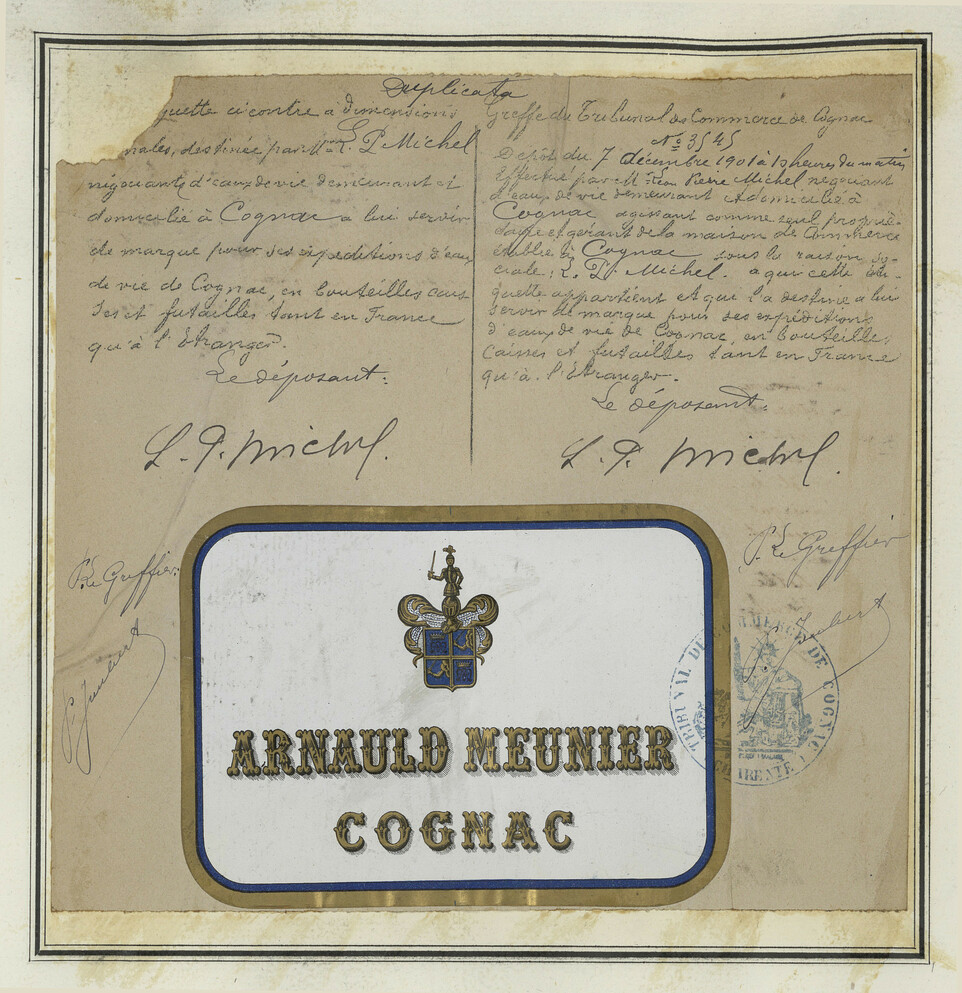 Duplicata
quette ci contre à dimensions
nales, destinée par Mr L. P. Michel
négociant d'eaux de vie demeurant et
domicilié à Cognac à lui servir
de marque pour ses expéditions d'eaux
de vie de Cognac, en bouteilles cais
ses et futailles tant en France
qu'à l'Etranger.
Le déposant.
L. P. Michel.
Pr. Le Greffier.
P. Joubert
Greffe du Tribunal de Commerce de Cognac
No 3545
Dépôt du 7 décembre 1901 à 10 heures du matin
Effectué par Mr Léon Pierre Michel négociant
d'eaux de vie demeurant et domicilié à
Cognac agissant comme seul proprié-
taire et gérant de la maison de Commerce
établie à Cognac sous la raison so-
ciale; L. P. Michel à qui cette éti-
quette appartient et qui l'a destinée à lui
servir de marque pour ses expéditions
d'eaux de vie de Cognac, en bouteilles
caisses et futailles tant en France
qu'à l'Etranger.
Le déposant.
L. P. Michel.
Pr. Le Greffier
P. Joubert
TRIBUNAL DE COMMERCE DE COGNAC
CHARENTE
ARNAULD MEUNIER
COGNAC